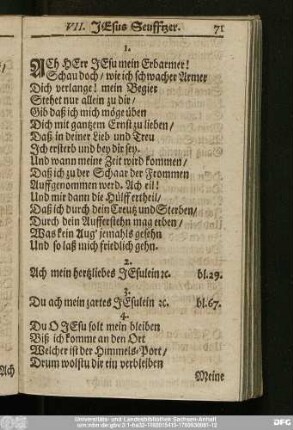 VII. JEsus Seufftzer. 71
1.
ACh HErr JEsu mein Erbarmer!
Schau doch/ wie ich schwacher Armer
Dich verlange! mein Begier
Stehet nur allein zu dir/
Gib daß ich mich möge üben
Dich mit gantzem Ernst zu lieben/
Daß in deiner Lieb und Treu
Ich ersterb und bey dir sey.
Und wann meine Zeit wird kommen/
Daß ich zu der Schaar der Frommen
Auffgenommen werd. Ach eil!
Und mir dann die Hülff ertheil/
Daß ich durch dein Creutz und Sterben/
Durch dein Aufferstehn mag erben/
Was kein Aug' jemahls gesehn
Und so laß mich friedlich gehn.
2.
Ach mein hertzliebes JEsulein ꝛc. bl.29.
3.
Du ach mein zartes JEsulein ꝛc. bl.67.
4.
Du O JEsu solt mein bleiben
Biß ich komme an den Ort
Welcher ist der Himmels-Port/
Drum wolstu dir ein verbleiben
Meine
Ach
Universitäts- und Landesbibliothek Sachsen-Anhalt